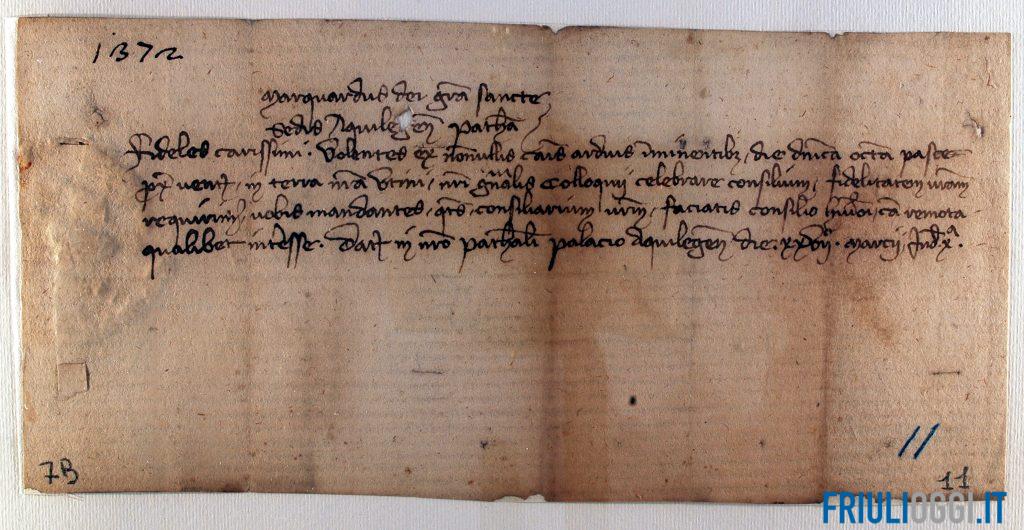 1372
Marquardus dei gra sancte
Sedis Aquilegen Patha
Fideles carissimi. Volentes ex nonnullis cais arduis iminentibz, die dnica octa pasce
px vent, in terra nra Utini, nri gnalis Colloquii celebrare consilium, fidelitatem vram
requirim, vobis mandantes, qts, consiliarium vrm, faciatis consilio ca remota
qualibet intesse. Dat in nro pathali palacio Aquilegen die. xxvij. Marcii, Ind. xa.
11
7B
11
FRIULIOGGI.IT